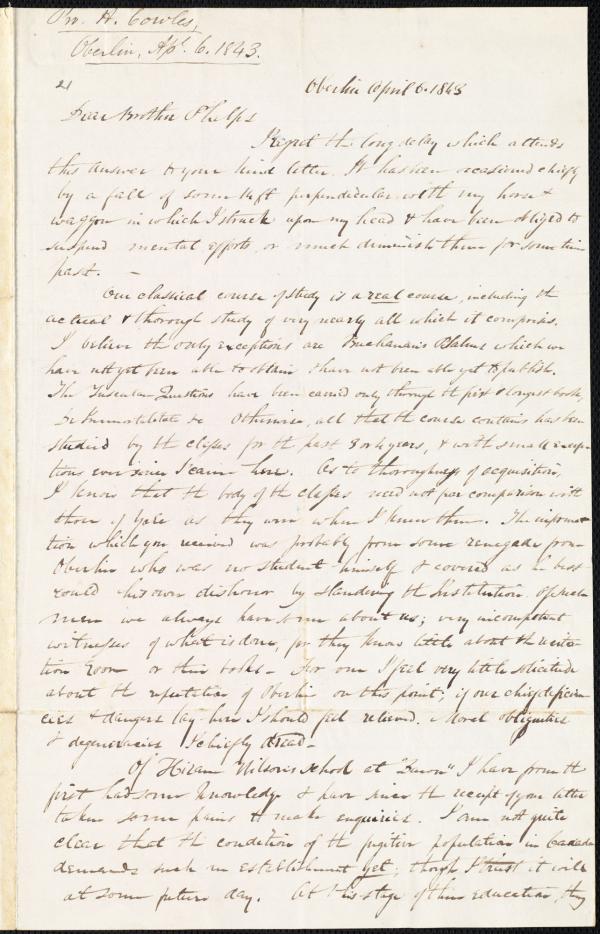 Pr. H. Cowles,
Oberlin, Apl. 6. 1843.
21
Oberlin April 6. 1843
Dear Brother Phelps
I regret the long delay which attends
this answer to your kind letter. It has been occasioned chiefly
by a fall of some 14 ft perpendicular with my horse &
waggon in which I struck upon my head & have been obliged to
suspend mental efforts, or much diminish them for some time
past. —
Our classical course of study is a real course, including the
actual & thorough study of very nearly all which it comprises.
I believe the only exceptions are Buchanan's Psalms which we
have not yet been able to obtain & have not been able yet to publish.
The Tusculan Questions have been carried only through the first & longest book,
De Immortalitate &c Otherwise, all that the course contains has been
studied by the classes for the past 3 or 4 years, & with small excep-
tions ever since I came here. As to thoroughness of acquisition,
I know that the body of the classes need not fear comparison with
those of Yale as they were when I knew them. The informa-
tion which you received was probably from some renegade from
Oberlin who was no student himself & covered as he best
could his own dishonor by slandering the Institution. Of such
men we always have some about us; very incompetent
witnesses of what is done, for they know little about the recita-
tion Room or their tasks — For one I feel very little solicitude
about the reputation of Oberlin on this point; if our chief deficien-
cies & dangers lay here I should feel relieved. Moral obliquities
& degeneracies I chiefly dread —
Of Hiram Wilson's School at "Dawn" I have from the
first had some knowledge & have since the receipt of your letter
taken some pains to make enquiries. I am not quite
clear that the condition of the fugitive population in Canada
demands such an establishment yet; though I trust it will
at some future day. At this stage of their education, they